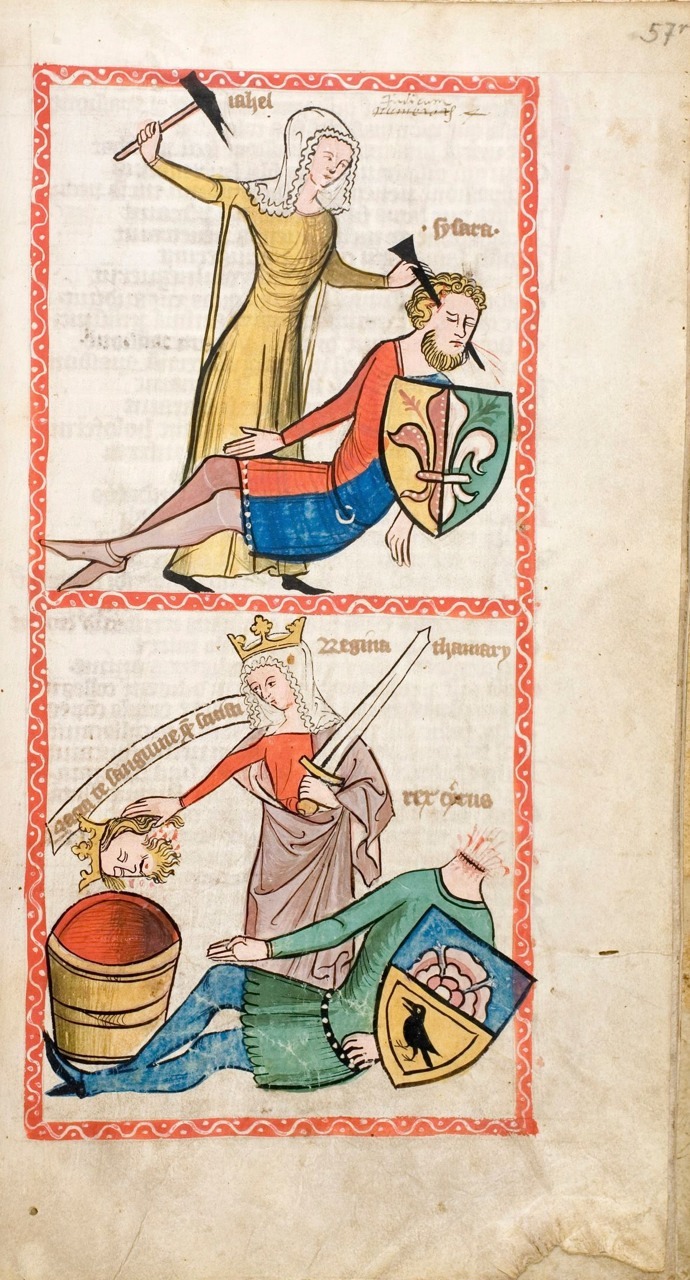 57r
iahel
Judicum
sysara
Regina thamary
te sanguine quem sitisti
rex cirus